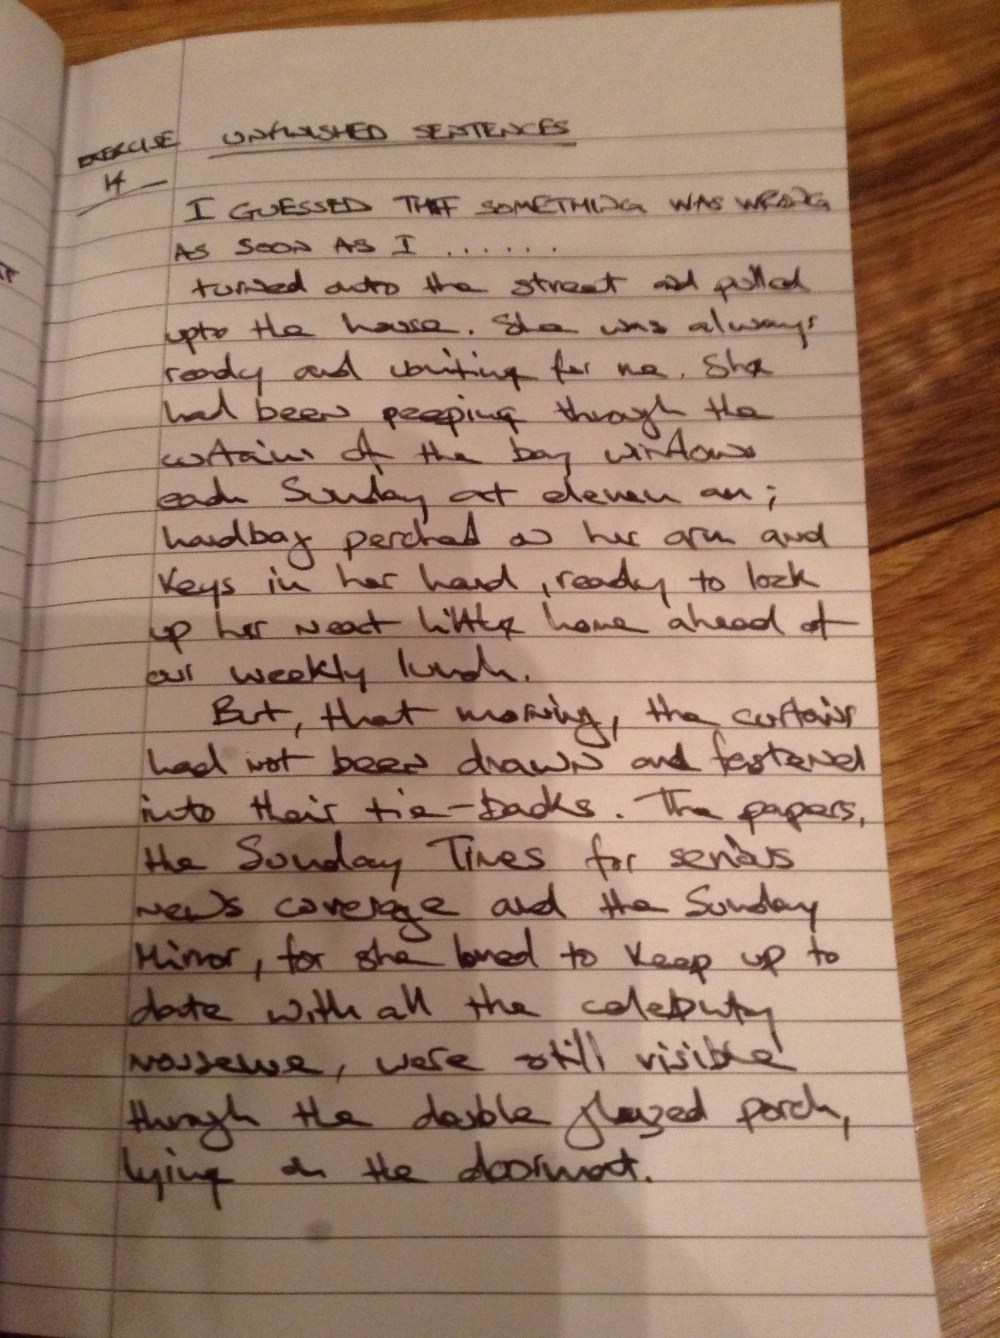 EXERCISE 14 UNFINISHED SENTENCES
I GUESSED THAT SOMETHING WAS WRONG
AS SOON AS I ......
turned onto the street and pulled
upto the house. She was always
ready and waiting for me. She
had been peeping through the
curtains of the bay windows
each Sunday at eleven am;
handbag perched on her arm and
keys in her hand, ready to lock
up her neat little home ahead of
our weekly lunch.
But, that morning, the curtains
had not been drawn and fastened
into their tie-backs. The papers,
the Sunday Times for serious
news coverage and the Sunday
Mirror, for she loved to keep up to
date with all the celebrity
nonsense, were still visible
through the double glazed porch,
lying on the doormat.